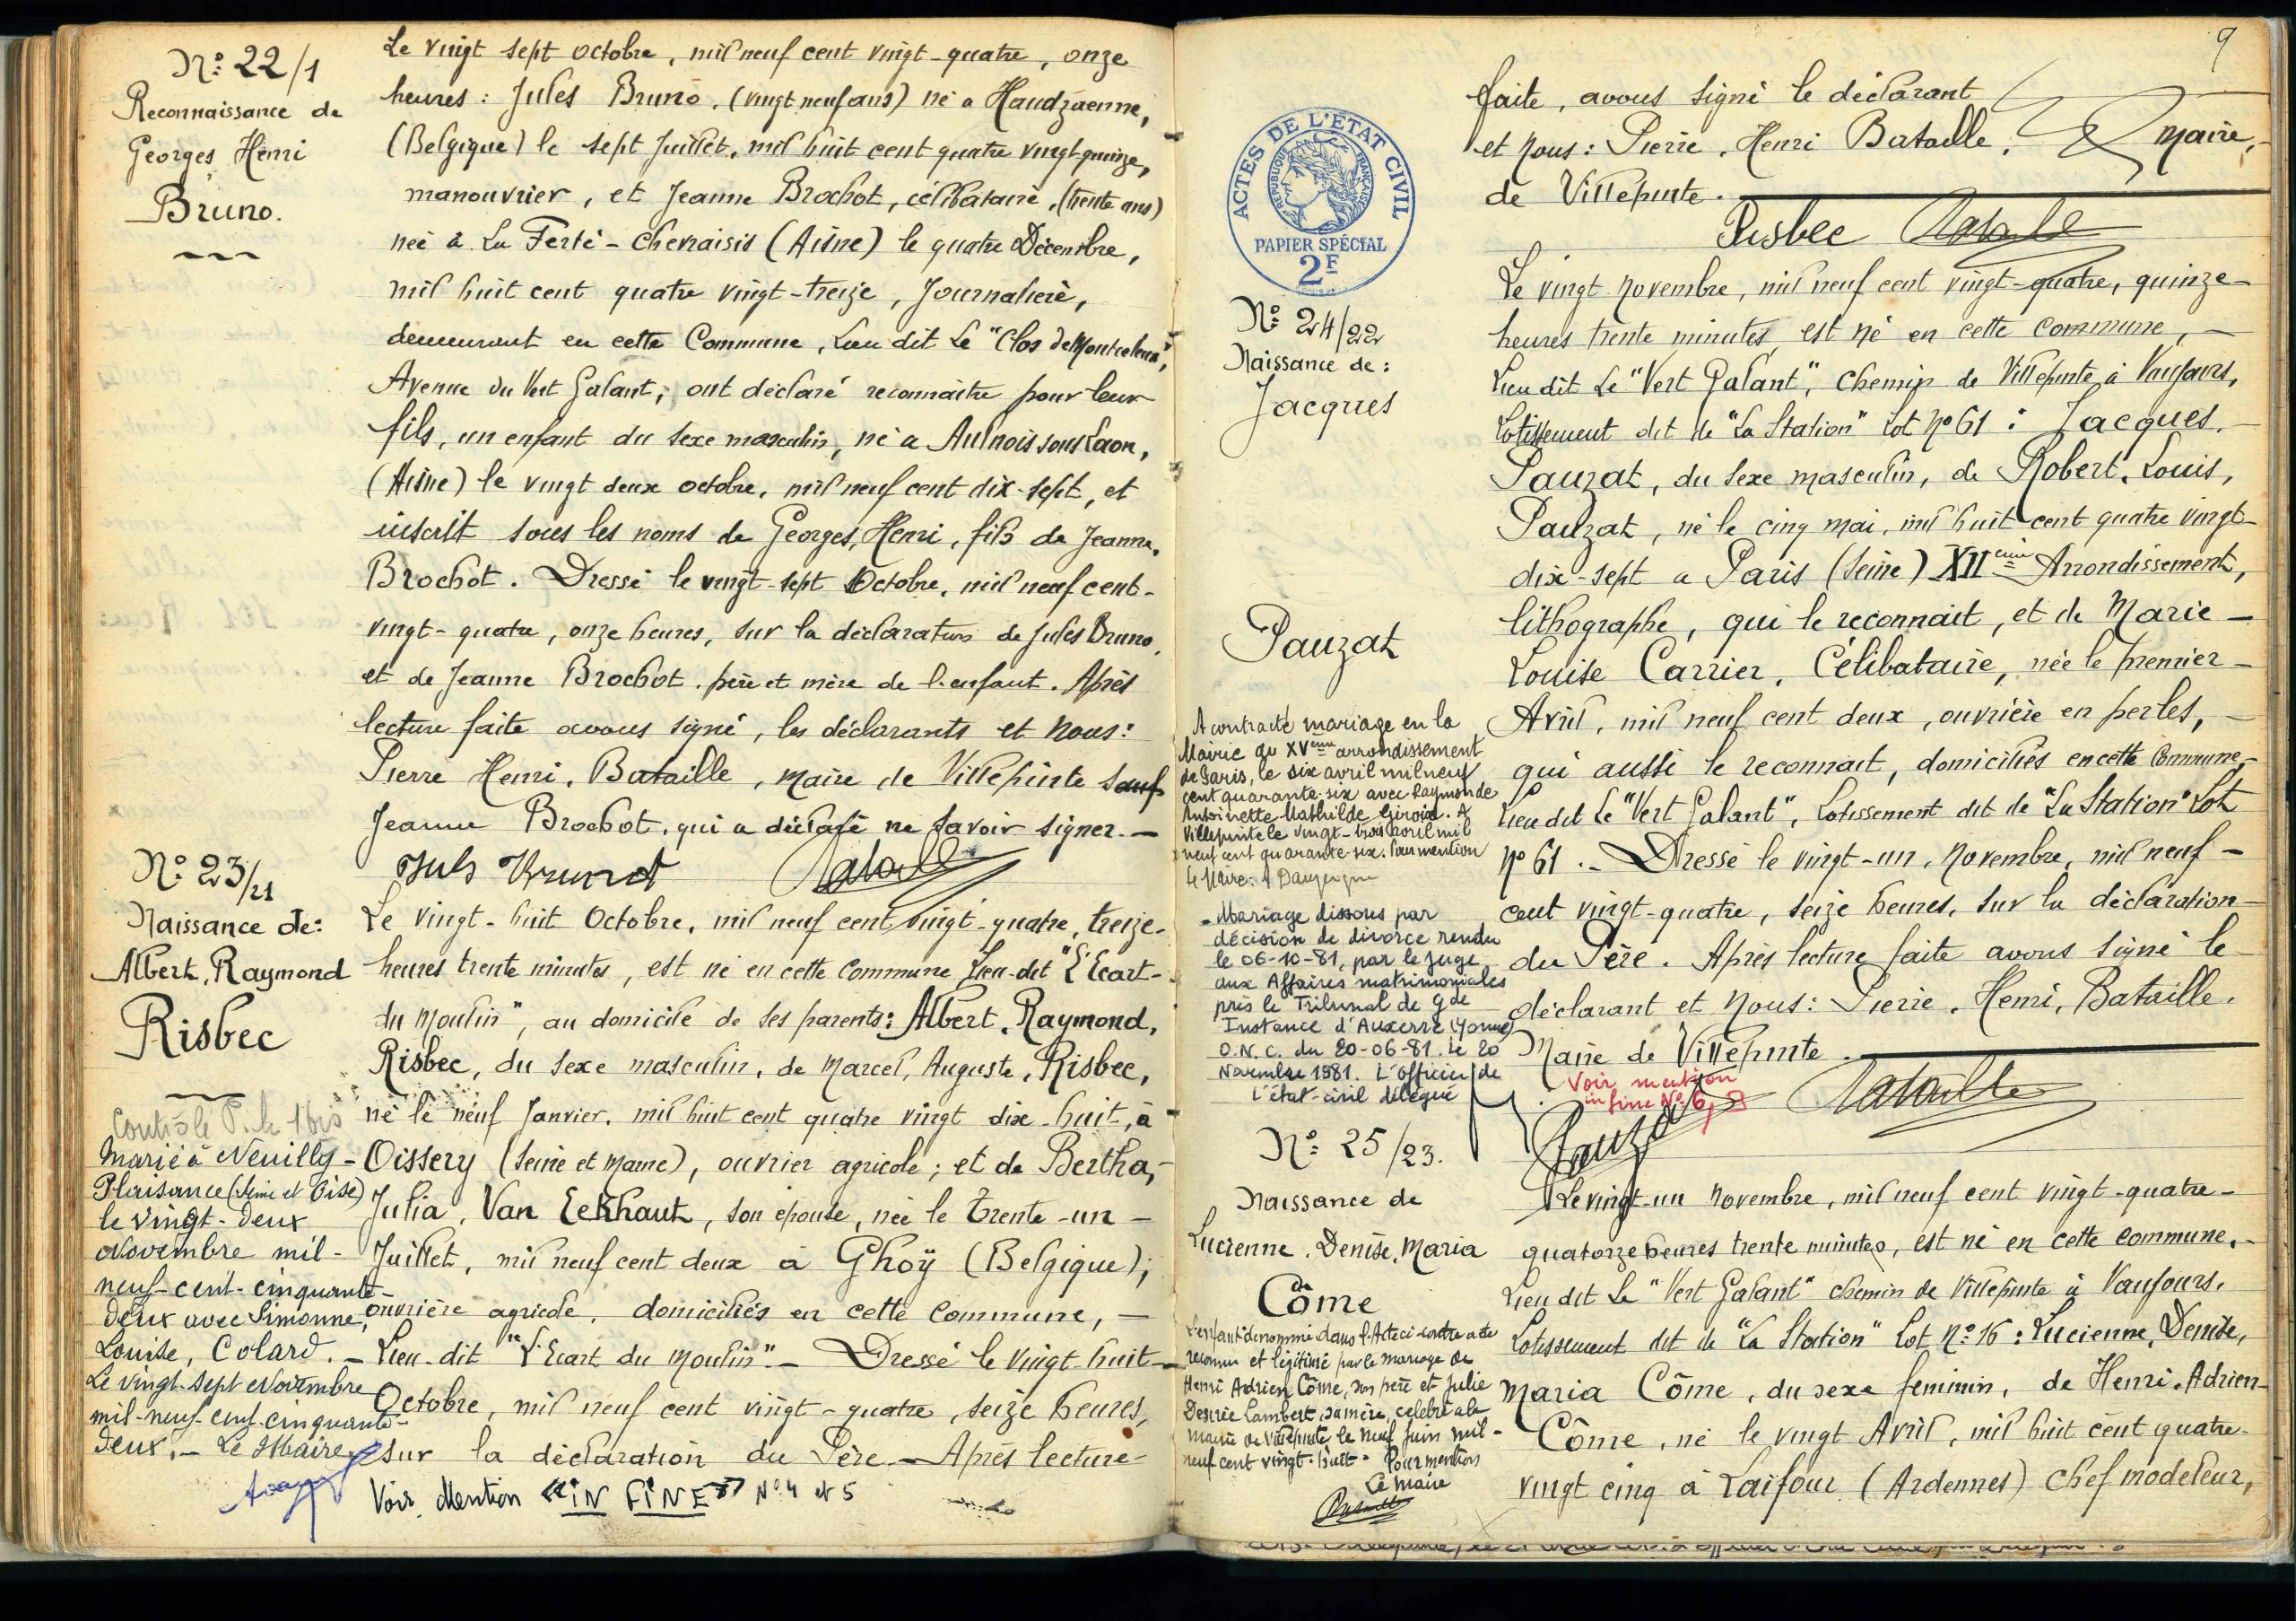 N° 22/1
Reconnaissance de
Georges Henri
Bruno.
Le vingt sept octobre, mil neuf cent vingt-quatre, onze
heures : Jules Bruno, (vingt neuf ans) né a Handzaenne,
(Belgique) le sept Juillet, mil huit cent quatre vingt quinze,
manouvrier, et Jeanne Brochot, célibataire, (trente ans)
née à La Ferté-Chevraisis (Aisne) le quatre Décembre,
mil huit cent quatre vingt-treize, Journalière,
demeurant en cette Commune, Lieu dit Le "Clos de
Avenue du Vert Galant, ont déclaré reconnaître pour leur
fils, un enfant du sexe masculin, né a Aulnois sous Laon,
(Aisne) le vingt deux octobre, mil neuf cent dix-sept, et
inscrit sous les noms de Georges, Henri, fils de Jeanne,
Brochot. Dressé le vingt-sept Octobre, mil neuf cent-
vingt-quatre, onze heures, sur la déclaration de Jules Bruno,
et de Jeanne Brochot, père et mère de l'enfant. Après
lecture faite avons signé, les déclarants et Nous :
Pierre Henri, Bataille, Maire de Villepinte sauf
Jeanne Brochot, qui a déclaré ne savoir signer. —
Juls Brunot Bataille
N° 23/21
Naissance de :
Albert, Raymond
Risbec
Le vingt-huit Octobre, mil neuf cent vingt-quatre, treize-
heures trente minutes, est né en cette commune Lieu-dit "L'Ecart-
du Moulin", au domicile de ses parents : Albert, Raymond,
Risbec, du sexe masculin, de Marcel, Auguste, Risbec,
né le neuf Janvier, mil huit cent quatre vingt dix-huit, à
Oissery (Seine et Marne), ouvrier agricole ; et de Bertha,-
Julia, Van Eekhaut, son épouse, née le trente-un -
Juillet, mil neuf cent deux à Ghoÿ (Belgique);
ouvrière agricole, domiciliés en cette Commune, —
Lieu-dit "L'Ecart du Moulin". — Dressé le vingt huit-
Octobre, mil neuf cent vingt-quatre, seize heures,
sur la déclaration du Père. — Après lecture-
Contrôle
Marié à Neuilly-
Plaisance (Seine et Oise)
le vingt-deux
Novembre mil-
neuf-cent-cinquante-
deux avec Simonne,
Louise, Colard. —
Le vingt-sept Novembre
mil-neuf-cent-cinquante-
deux. — Le Maire
Voir Mention «IN FINE» N° 4 et 5
9
faite, avons signé le déclarant
et Nous : Pierre, Henri Bataille, Maire,
de Villepinte.
Risbec Bataille
ACTES DE L'ÉTAT CIVIL
RÉPUBLIQUE FRANÇAISE
PAPIER SPÉCIAL
2F
N° 24/22
Naissance de :
Jacques
Pauzat
Le vingt Novembre, mil neuf cent vingt-quatre, quinze-
heures trente minutes, est né en cette commune, —
Lieu dit Le "Vert Galant", chemin de Villepinte à Vaujours,
Lotissement dit de "La Station" Lot N° 61 : Jacques.
Pauzat, du sexe masculin, de Robert, Louis,
Pauzat, né le cinq mai, mil huit cent quatre vingt-
dix-sept a Paris (Seine) XIIème Arrondissement,
lithographe, qui le reconnait, et de Marie —
Louise Carrier, Célibataire, née le premier —
Avril, mil neuf cent deux, ouvrière en perles, —
qui aussi le reconnait, domiciliés en cette Commune,-
Lieu dit Le "Vert Galant", Lotissement dit de "La Station" Lot
N° 61. — Dressé le vingt-un, Novembre, mil neuf —
cent vingt-quatre, seize heures, sur la déclaration —
du Père. Après lecture faite avons signé le
déclarant et Nous : Pierre, Henri, Bataille,
Maire de Villepinte.
Voir mention
in fine N° 6,
Pauzat Bataille
A contracté mariage en la
Mairie du XVème arrondissement
de Paris, le six avril mil neuf
cent quarante-six avec Raymonde
Antoinette Mathilde Giroid. A
Villepinte le vingt-trois avril mil
neuf cent quarante-six. Pour mention
Le Maire :
- Mariage dissous par
décision de divorce rendu
le 06-10-81, par le Juge
aux Affaires matrimoniales
près le Tribunal de Gde
Instance d'Auxerre (Yonne)
O.N.C. du 20-06-81. Le 20
Novembre 1981. L'officier de
l'état-civil délégué
N° 25/23.
Naissance de
Lucienne, Denise, Maria
Côme
Le vingt-un Novembre, mil neuf cent vingt-quatre-
quatorze heures trente minutes, est né en cette commune,-
Lieu dit Le "Vert Galant" chemin de Villepinte à Vaujours,
Lotissement dit de "La Station" Lot N° 16 : Lucienne, Denise,
Maria Côme, du sexe feminin, de Henri, Adrien-
Côme, né le vingt Avril, mil huit cent quatre-
vingt cinq à Laifour (Ardennes) Chef modeleur,
L'enfant dénommé dans l'Acte ci-contre a été
reconnu et légitimé par le mariage de
Henri Adrien Côme, son père et Julie
Desirée Lambert, sa mère, célébré a la
Mairie de Villepinte le neuf Juin mil-
neuf cent vingt-huit. Pour mention
Le Maire
Bataille